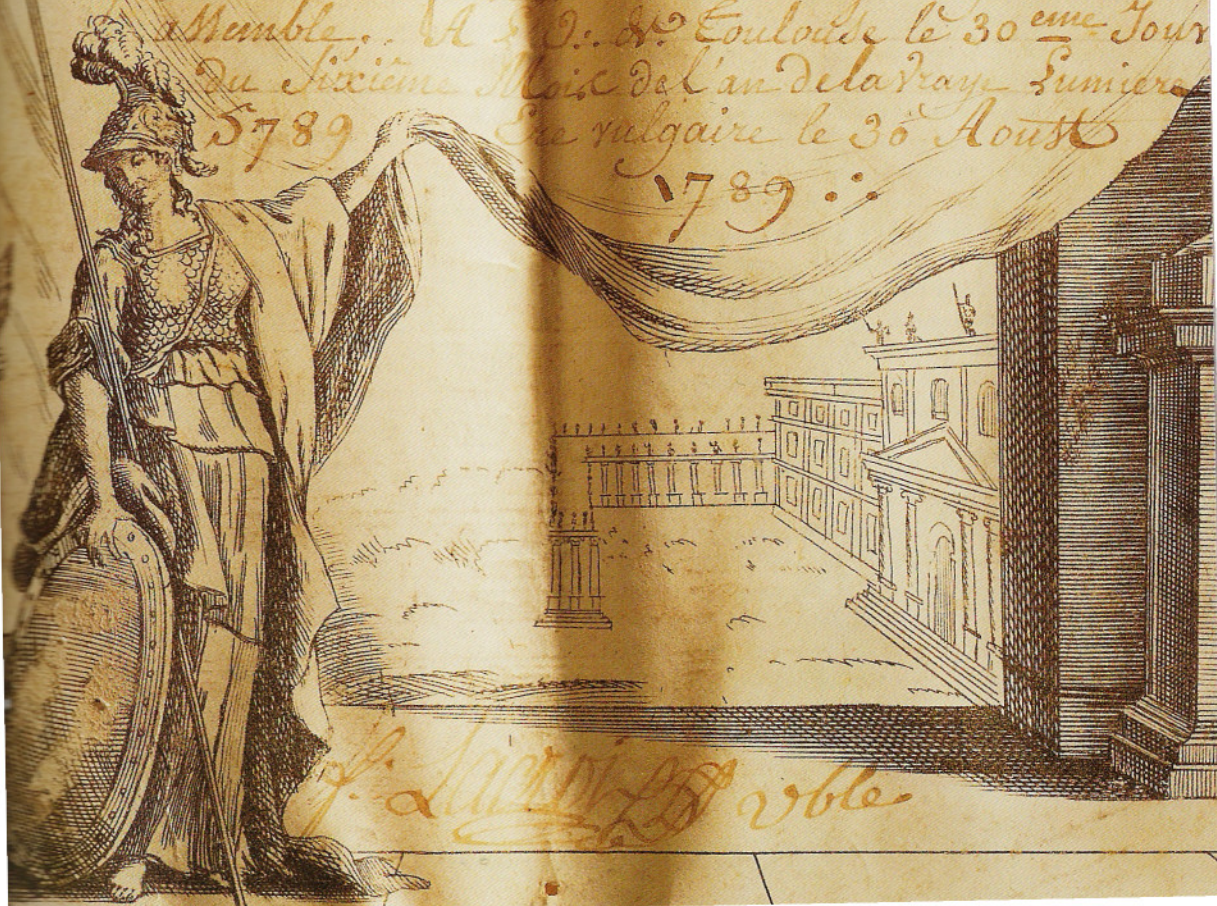 assemble. A L'O∴ de Toulouse le 30 eme Jour
du Sixième Mois de l'an de la Vraye Lumiere
5789 Ere vulgaire le 30 Aoust
1789 ∴
f. Vble